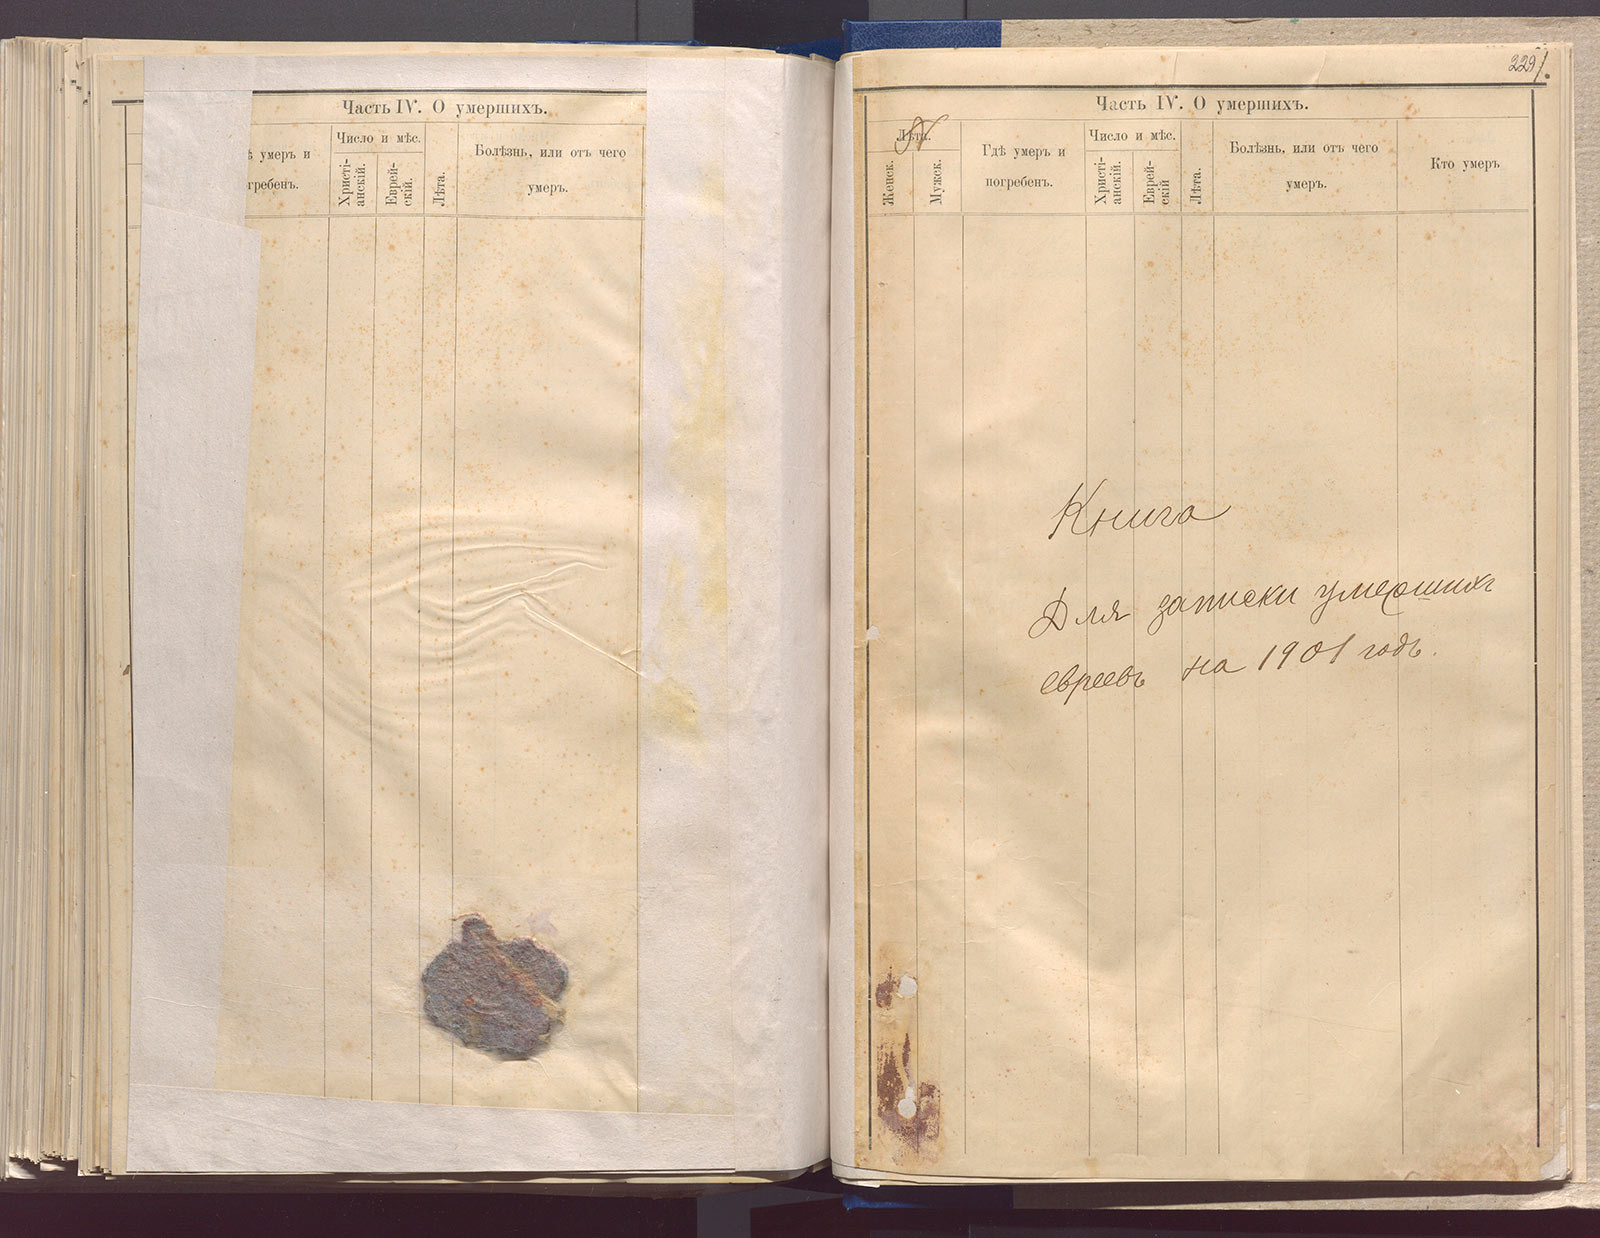 Часть IV. О умершихъ.
ѣ умеръ и
гребенъ.
Число и мѣс.
Христі-
анскій.
Еврей-
скій.
Лѣта.
Болѣзнь, или отъ чего
умеръ.
229
Часть IV. О умершихъ.
Лѣта.
Женск.
Мужск.
Гдѣ умеръ и
погребенъ.
Число и мѣс.
Христі-
анскій.
Еврей-
скій
Лѣта.
Болѣзнь, или отъ чего
умеръ.
Кто умеръ
Книга
Для записки умершихъ
евреевъ на 1901 годъ.